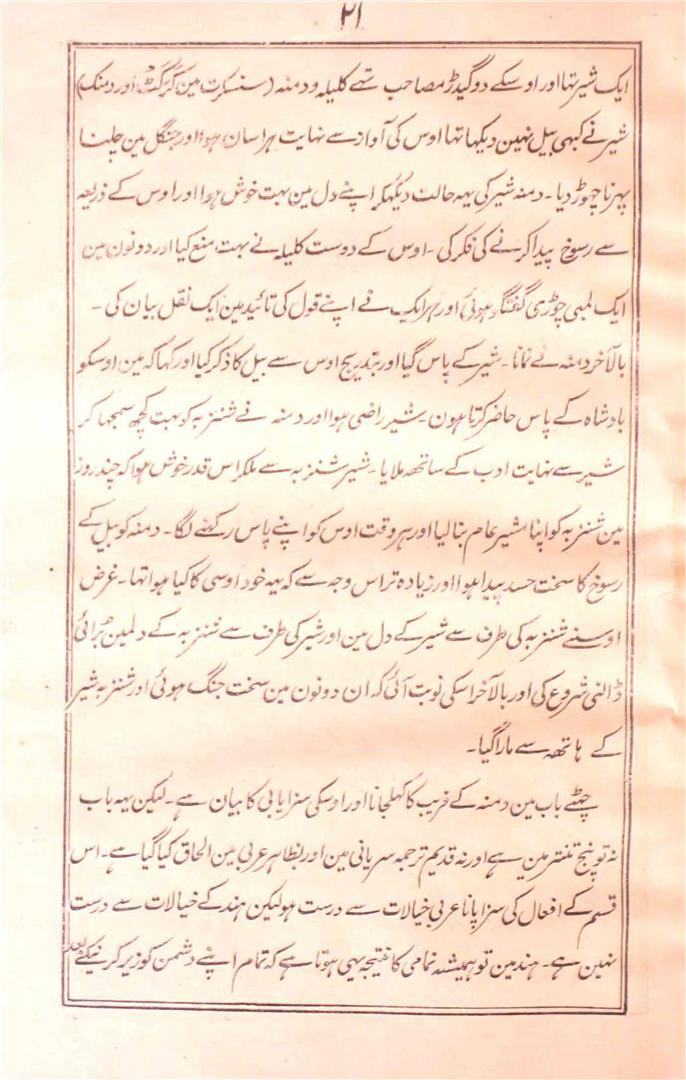 ۲۱
ایک شیر تہا اور اوسکے دو گیدڑ مصاحب تہے کلیلہ و دمنہ (سنسکرت مین کرَٹکٹ اور دمنک)
شیر نے کبہی بیل نہین دیکہا تہا اوس کی آواز سے نہایت ہراسان ہوا اور جنگل مین چلنا
پہرنا چہوڑ دیا۔ دمنہ شیر کی یہہ حالت دیکہکر اپنے دل مین بہت خوش ہوا اور اوس کے ذریعہ
سے رسوخ پیدا کرنے کی فکر کی۔ اوس کے دوست کلیلہ نے بہت منع کیا اور دونون مین
ایک لمبی چوڑی گفتگو ہوئی اور ہر ایک نے اپنے قول کی تائید مین ایک نقل بیان کی۔
بالآخر دمنہ نے نمانا۔ شیر کے پاس گیا اور بتدریج اوس سے بیل کا ذکر کیا اور کہا کہ مین اوسکو
بادشاہ کے پاس حاضر کرتا ہون۔ شیر راضی ہوا اور دمنہ نے شنزبہ کو بہت کچھ سمجہا کر
شیر سے نہایت ادب کے ساتھہ ملایا۔ شیر شنزبہ سے ملکر اس قدر خوش ہوا کہ چند روز
مین شنزبہ کو اپنا مشیر عام بنا لیا اور ہر وقت اوس کو اپنے پاس رکہنے لگا۔ دمنہ کو بیل کے
رسوخ کا سخت حسد پیدا ہوا اور زیادہ تر اس وجہ سے کہ یہہ خود اوسی کا کیا ہوا تہا۔ غرض
اوسنے شنزبہ کی طرف سے شیر کے دل مین اور شیر کی طرف سے شنزبہ کے دلمین بُرائی
ڈالنی شروع کی اور بالآخر اسکی نوبت آئی کہ ان دونون مین سخت جنگ ہوئی اور شنزبہ شیر
کے ہاتھہ سے مارا گیا۔
چہٹے باب مین دمنہ کے فریب کا کہلجانا اور اوسکی سزایابی کا بیان ہے۔ لیکن یہہ باب
نہ تو پنج تنتر مین ہے اور نہ قدیم ترجمہ سریانی مین اور بظاہر عربی مین الحاق کیا گیا ہے۔ اس
قسم کے افعال کی سزا پانا عربی خیالات سے درست ہو لیکن ہند کے خیالات سے درست
نہین ہے۔ ہند مین تو ہمیشہ نمامی کا نتیجہ یہی ہوتا ہے کہ تمام اپنے دشمن کو زیر کرنیکے بعد